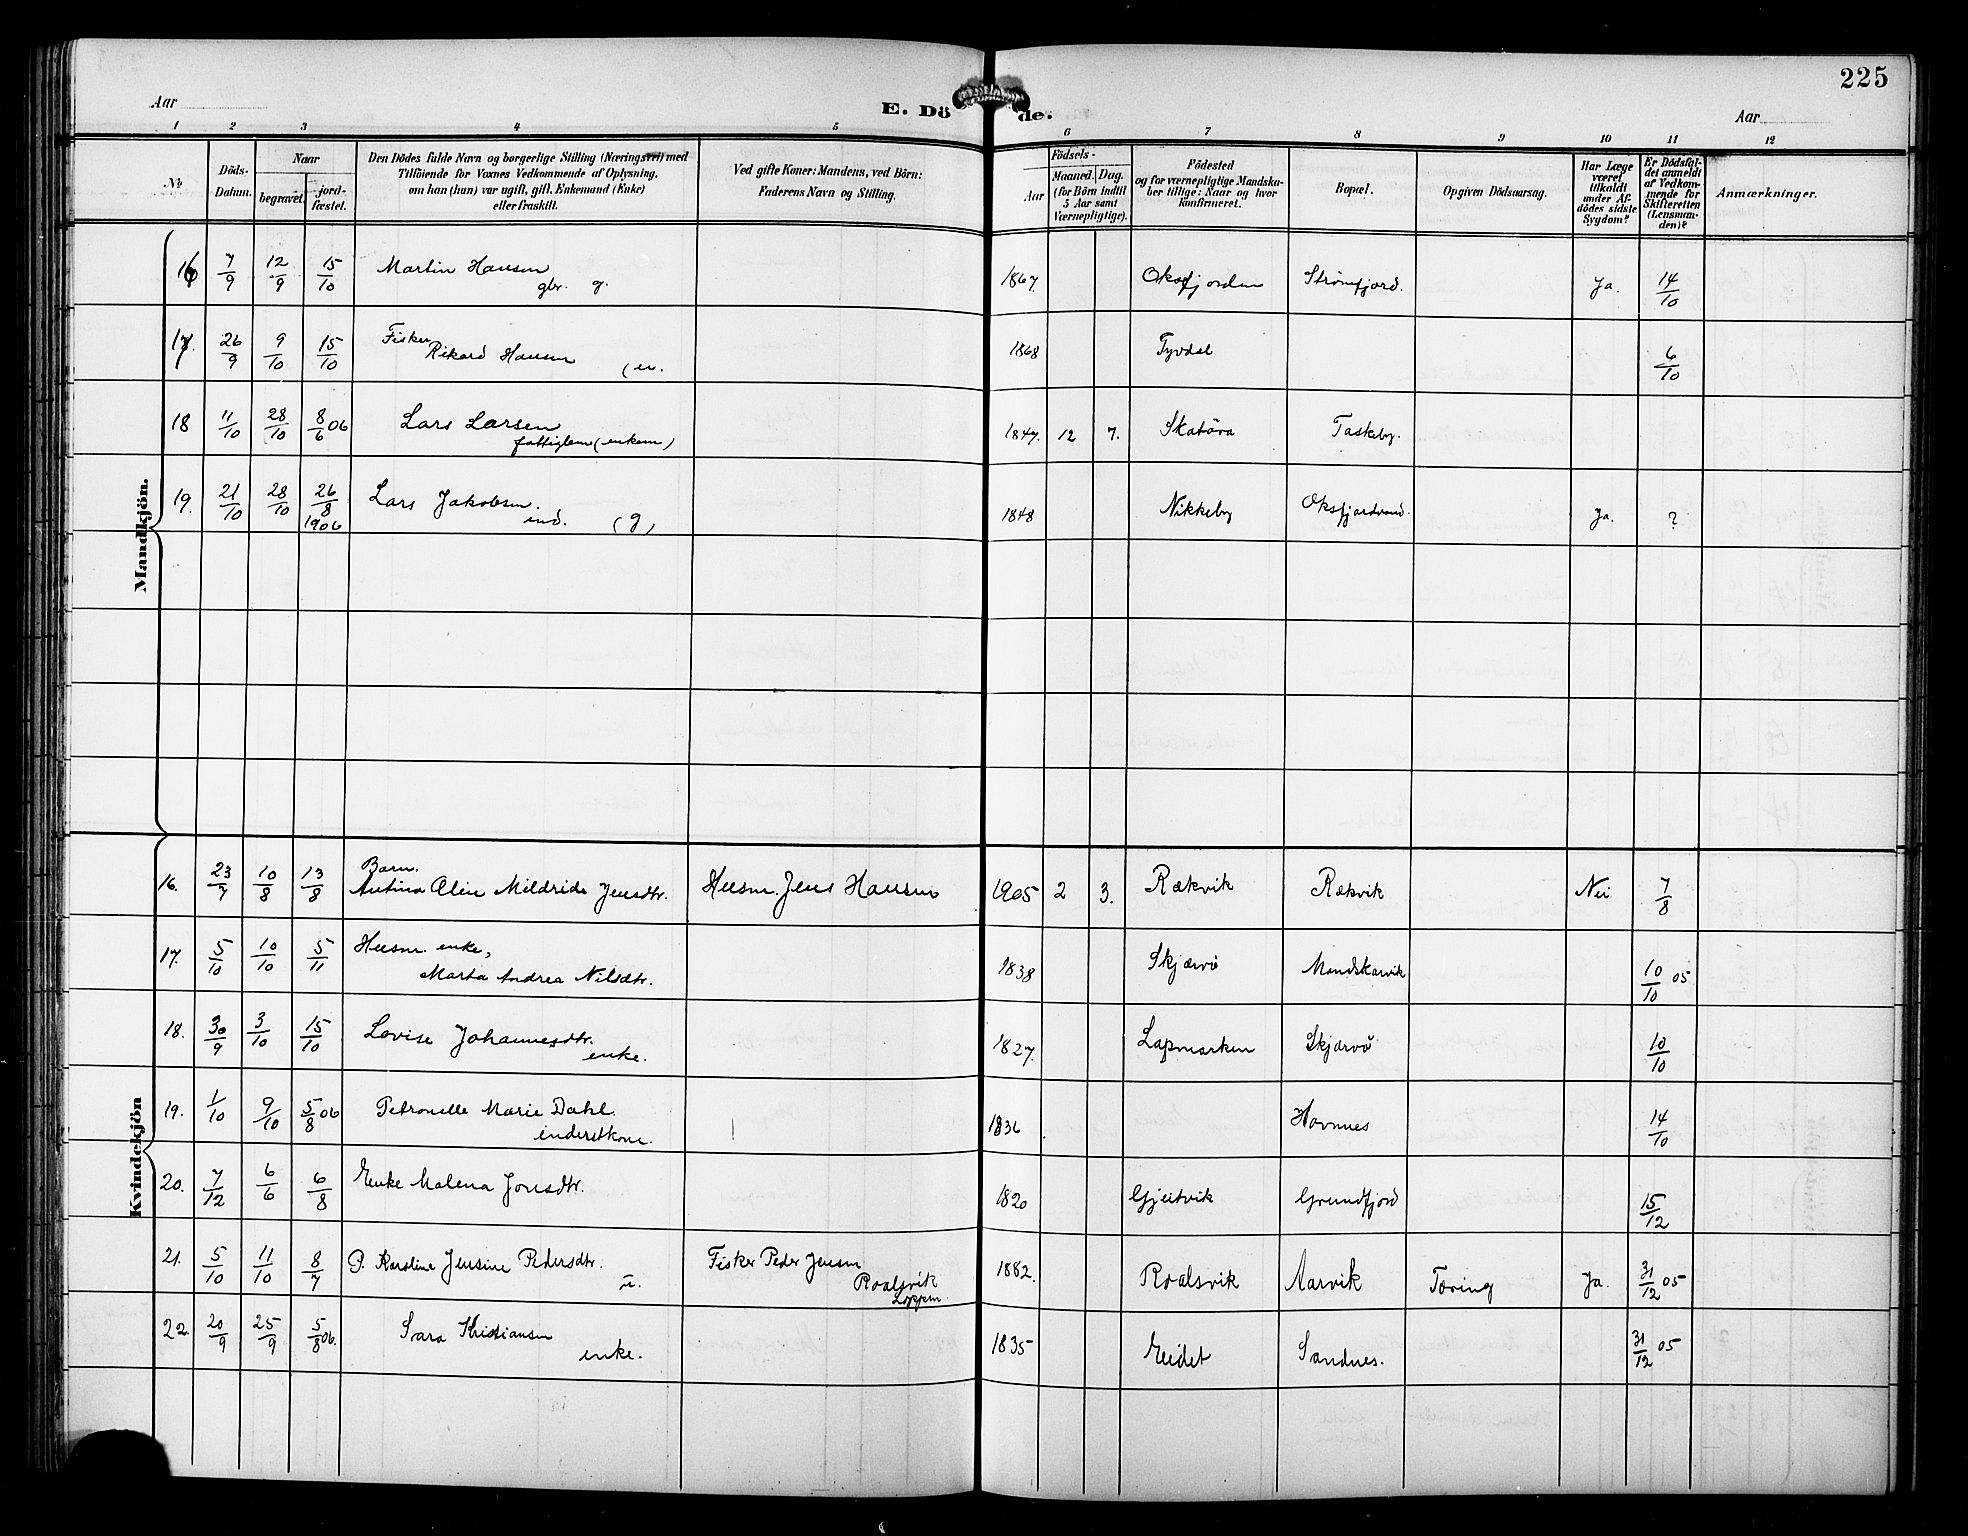 225
Aar
E. Dö de.
Aar
1 2 3 4 5 6 7 8 9 10 11 12
No
Döds-Datum.
Naar
begravet.
jord-fæstet.
Den Dödes fulde Navn og borgerlige Stilling (Næringsvei) med
Tilföiende for Voxnes Vedkommende af Oplysning,
om han (hun) var ugift, gift, Enkemand (Enke)
eller fraskilt.
Ved gifte Koner: Mandens, ved Börn:
Faderens Navn og Stilling.
Födsels-
Aar
Maaned. Dag.
(for Börn indtil
5 Aar samt
Værnepligtige).
Födested
og for værnepligtige Mandska-
ber tillige: Naar og hvor
konfirmeret.
Bopæl.
Opgiven Dödsaarsag.
Har Læge
været
tilkaldt
under Af-
dödes sidste
Sygdom?
Er Dödsfal-
det anmeldt
af Vedkom-
mende for
Skifteretten
(Lensman-
den)?
Anmærkninger.
Mandkjön.
16 7/9 12/9 15/10 Martin Hansen gbr. g. 1867. Oksfjorden Strömfjord. Ja. 14/10
17. 26/9 9/10 15/10 Fisker Rikard Hansen 1868 Tyvdal 6/10
18 11/10 28/10 8/6 06 Lars Larsen fattiglem (enkem) 1847. 12 7. Skatöra Taskeby.
19. 21/10 28/10 26/8 1906 Lars Jakobsen. ind. (g) 1848 Nikkeby Oksfjordvand. Ja. ?
Kvindekjön
16. 23/7 10/8 13/8 Barn. Antina Oline Mildride Jensdtr. Husm. Jens Hansen 1905 2 3. Rækvik Rækvik Nei 7/8
17. 5/10 10/10 5/11 Husm. enke, Marta Andrea Nilsdtr. 1838 Skjærvö Mandskarvik 10/10 05
18. 30/9 3/10 15/10 Lovise Johannesdtr. enke. 1827. Lapmarken Skjærvö 10/10
19. 1/10 9/10 5/8 06 Petronelle Marie Dahl. inderstkone. 1836 Havnnes 14/10
20. 7/12 6/6 6/8 Enke Malena Jonsdtr. 1820 Gjeitvik Grundfjord 15/12
21. 5/10 11/10 8/7 P. Karoline Jensine Pedersdtr. u. Fisker Peder Jensen Roalsvik Loppen. 1882. Roalsvik Aarvik Tæring Ja. 31/12 05
22. 20/9 25/9 5/8 06. Sara Kristiansen enke. 1835 Eidet Sandnes. 31/12 05